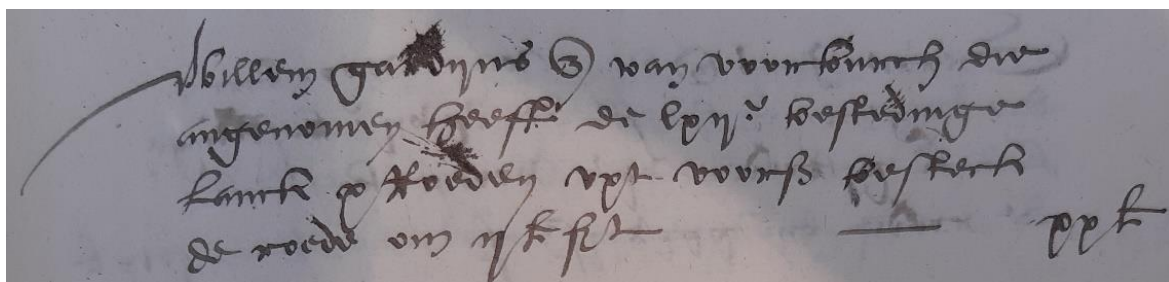 Willem garbijns z van voorburch die
angenomen heefft de lxije bestedinge
lanck x Roeden upt voors besteck
de roede om ij £ f[ac]it xx £